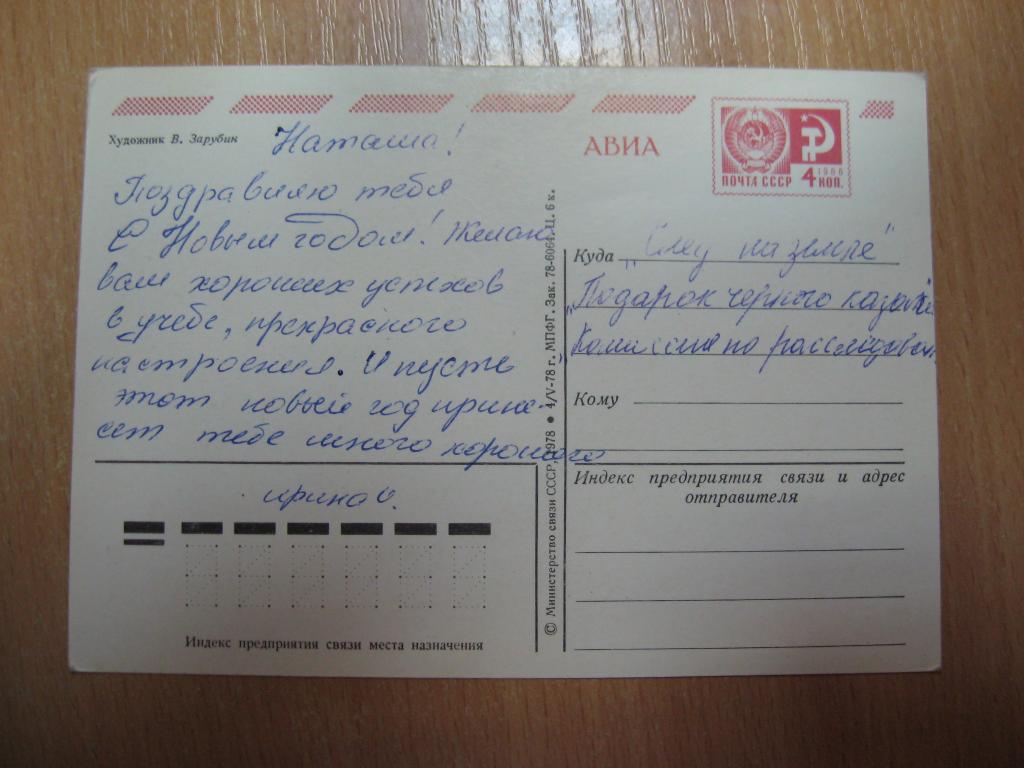 Художник В. Зарубин
Наташа!
Поздравляю тебя
С Новым годом! Желаю
вам хороших успехов
в учебе, прекрасного
настроения. И пусть
этот новый год прине-
сет тебе много хорошего
Ирина О.
Индекс предприятия связи места назначения
© Министерство связи СССР, 1978 ● 4/V-78 г. МПФГ. Зак. 78-6064. Ц. 6 к.
АВИА
ПОЧТА СССР
1966
4 КОП.
Куда „След на земле"
„Подарок черного
Комиссия по
Кому
Индекс предприятия связи и адрес
отправителя